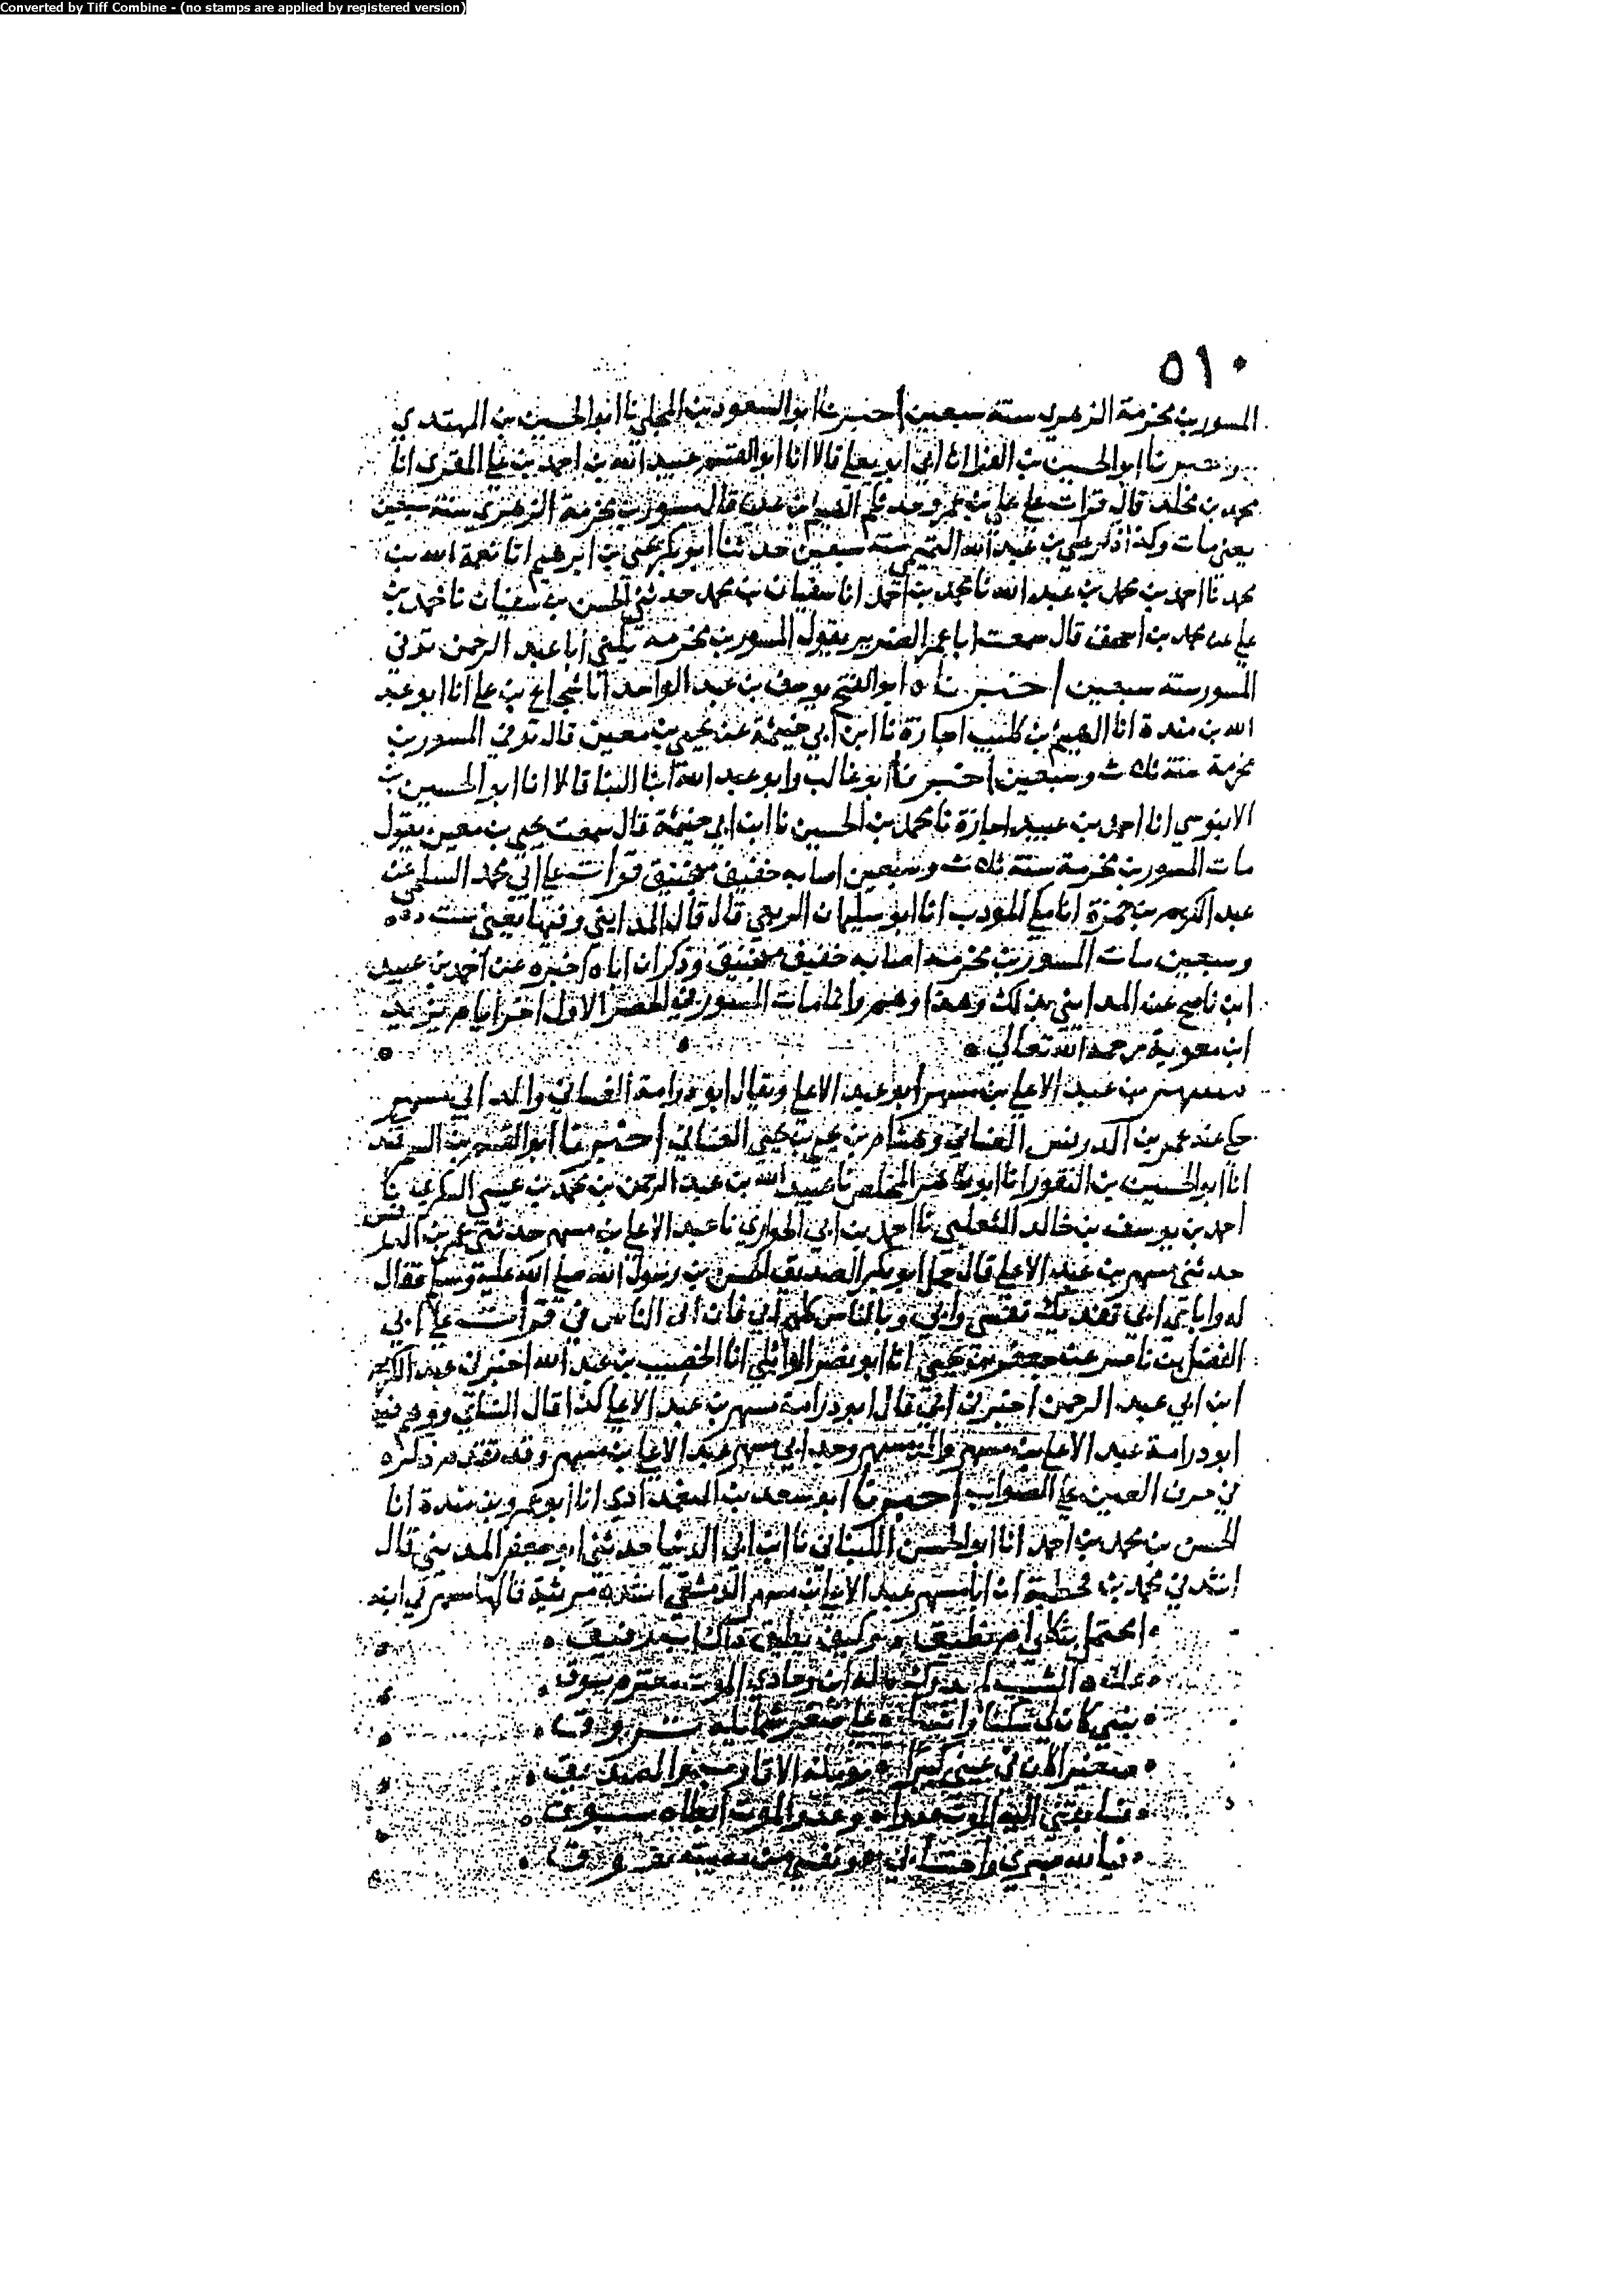 Converted by Tiff Combine - (no stamps are applied by registered version)
٥١٠
المسور بن مخرمة الزهري سنة سبعين اخبرنا ابو السعود بن المجلي نا ابو الحسين بن المهتدي
واخبرنا ابو الحسين بن الفرا انا ابي ابو يعلى قالا انا ابو القسم عبيد الله بن احمد بن علي المقرى انا
محمد بن مخلد قال قرات على علي بن عمرو حدثكم الهيثم بن عدي قال مسور بن مخرمة الزهري سنة سبعين
يعني مات وكذا ذكر علي بن عبد الله التميمي سنة سبعين حدثنا ابو بكر يحيى بن ابرهيم انا نعمة الله بن
محمد نا احمد بن محمد بن عبد الله نا محمد بن احمد انا سفيان بن محمد حدثني الحسن بن سفيان نا محمد بن
علي عن محمد بن اسحق قال سمعت ابا عمر الضرير يقول المسور بن مخرمه يكنى ابا عبد الرحمن توفي
المسور سنة سبعين اخبرناه ابو الفتح يوسف بن عبد الواحد انا شجاع بن علي انا ابو عبد
الله بن مندة انا الهيثم بن كليب اجازة نا ابن ابي خيثمة عن يحيى بن معين قال توفي المسور بن
مخرمة سنة ثلاث وسبعين اخبرنا ابو غالب وابو عبد الله ابنا البنا قالا انا ابو الحسين بن
الابنوسي انا احمد بن عبيد اجازة نا محمد بن الحسين نا ابن ابي خيثمة قال سمعت يحيى بن معين يقول
مات المسور بن مخرمة سنة ثلاث وسبعين اصابه خفيف منجنيق قرات على ابي محمد السلمي عن
عبد الكريم بن حمزة انا مكي المودب انا ابو سليمان الربعي قال قال المدايني وفيها يعني سنت
وسبعين مات المسور بن مخرمة اصابه خفيف منجنيق وذكر ان اباه اخبره عن احمد بن عبيد
ابن ناصح عن المدايني بذلك وهذا وهم وانما مات المسور في الحصر الاول اخر ايام يزيد
ابن معوية رحمه الله تعالى
مسهر بن عبد الاعلى بن مسهر ابو عبد الاعلى ويقال ابو درامة الغساني والد ابي مسهر
حكى عنه عمر بن الدريس الغساني وهشام بن يحيى بن يحيى الغساني اخبرنا ابو القسم بن السمرقند
انا ابو الحسين بن النقور انا ابو طاهر المخلص نا عبيد الله بن عبد الرحمن بن محمد بن عيسى السكري نا
احمد بن يوسف بن خالد التغلبي نا احمد بن ابي الحواري نا عبد الاعلى بن مسهر حدثني عمر بن الدريس
حدثني مسهر بن عبد الاعلى قال حمل ابو بكر الصديق الحسن بن رسول الله صلى الله عليه وسلم فقال
له وابابي ابي تفديك نفسي وابي وبالناس كلهم ابي فان الى الناس في قرات على ابي
الفضل بن ناصر عن جعفر بن يحيى انا ابو نصر الوائلي انا الخصيب بن عبد الله اخبرني عبد الكريم
ابن ابي عبد الرحمن اخبرني ابي قال ابو درامة مسهر بن عبد الاعلى كذا قال النسائي ووهم فيه
ابو درامة عبد الاعلى بن مسهر والد مسهر وجد ابي مسهر عبد الاعلى بن مسهر وقد تقدم ذكره
في حرف العين على الصواب اخبرنا ابو سعد بن البغدادي انا ابو عمرو بن مندة انا
الحسن بن محمد بن احمد انا ابو الحسن اللنباني نا ابن ابي الدنيا حدثني ابو جعفر المديني قال
انشدني محمد بن محطبة ان ابا مسهر عبد الاعلى بن مسهر الدمشقي انشده مرثية قالها مسهر في ابنه
وكيف يطيق ذاك اب رفيق
وحادي الموت
بني كان لي سكنا وانسا على صغر شمايله تروق
صغير الان في عيني كبير يومله الاقارب والصديق
وعند الموت
فيالله صبري واحتسابي